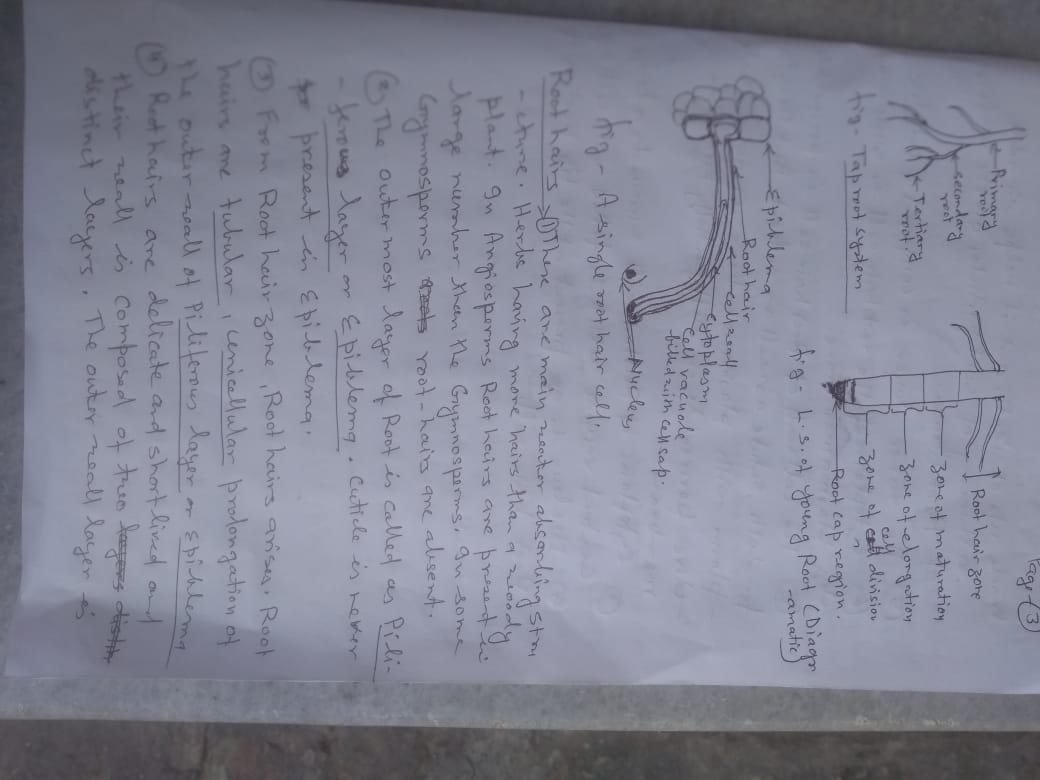 Page-(3)
Primary root
secondary root
Tertiary root
fig - Tap root system
Root hair zone
Zone of maturation
Zone of elongation
Zone of cell division
Root cap region.
fig - L.S. of young Root (Diagr
-amatic)
Epiblema
Root hair
cell wall
cytoplasm
Cell vacuole
filled with cell sap.
Nucleus
fig - A single root hair cell.
Root hairs → (1) These are main water absorbing stru
-cture. Herbs having more hairs than a woody
plant. In Angiosperms Root hairs are present in
large number than the Gymnosperms. In some
Gymnosperms root-hairs are absent.
(2) The outermost layer of Root is called as Pili-
-ferous layer or Epiblema. Cuticle is never
present in Epiblema.
(3) From Root hair zone, Root hairs arises. Root
hairs are tubular, unicellular prolongation of
the outer wall of Piliferous layer or Epiblema
(4) Root hairs are delicate and short lived and
their wall is composed of two
distinct layers. The outer wall layer is